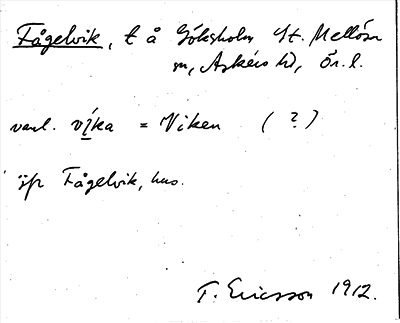 Fågelvik, t å Göksholm St. Mellösa
sn, Askers hd, Ör. l.
vanl. vika = Viken ( ? )
jfr Fågelvik, hus.
T. Ericsson 1912.